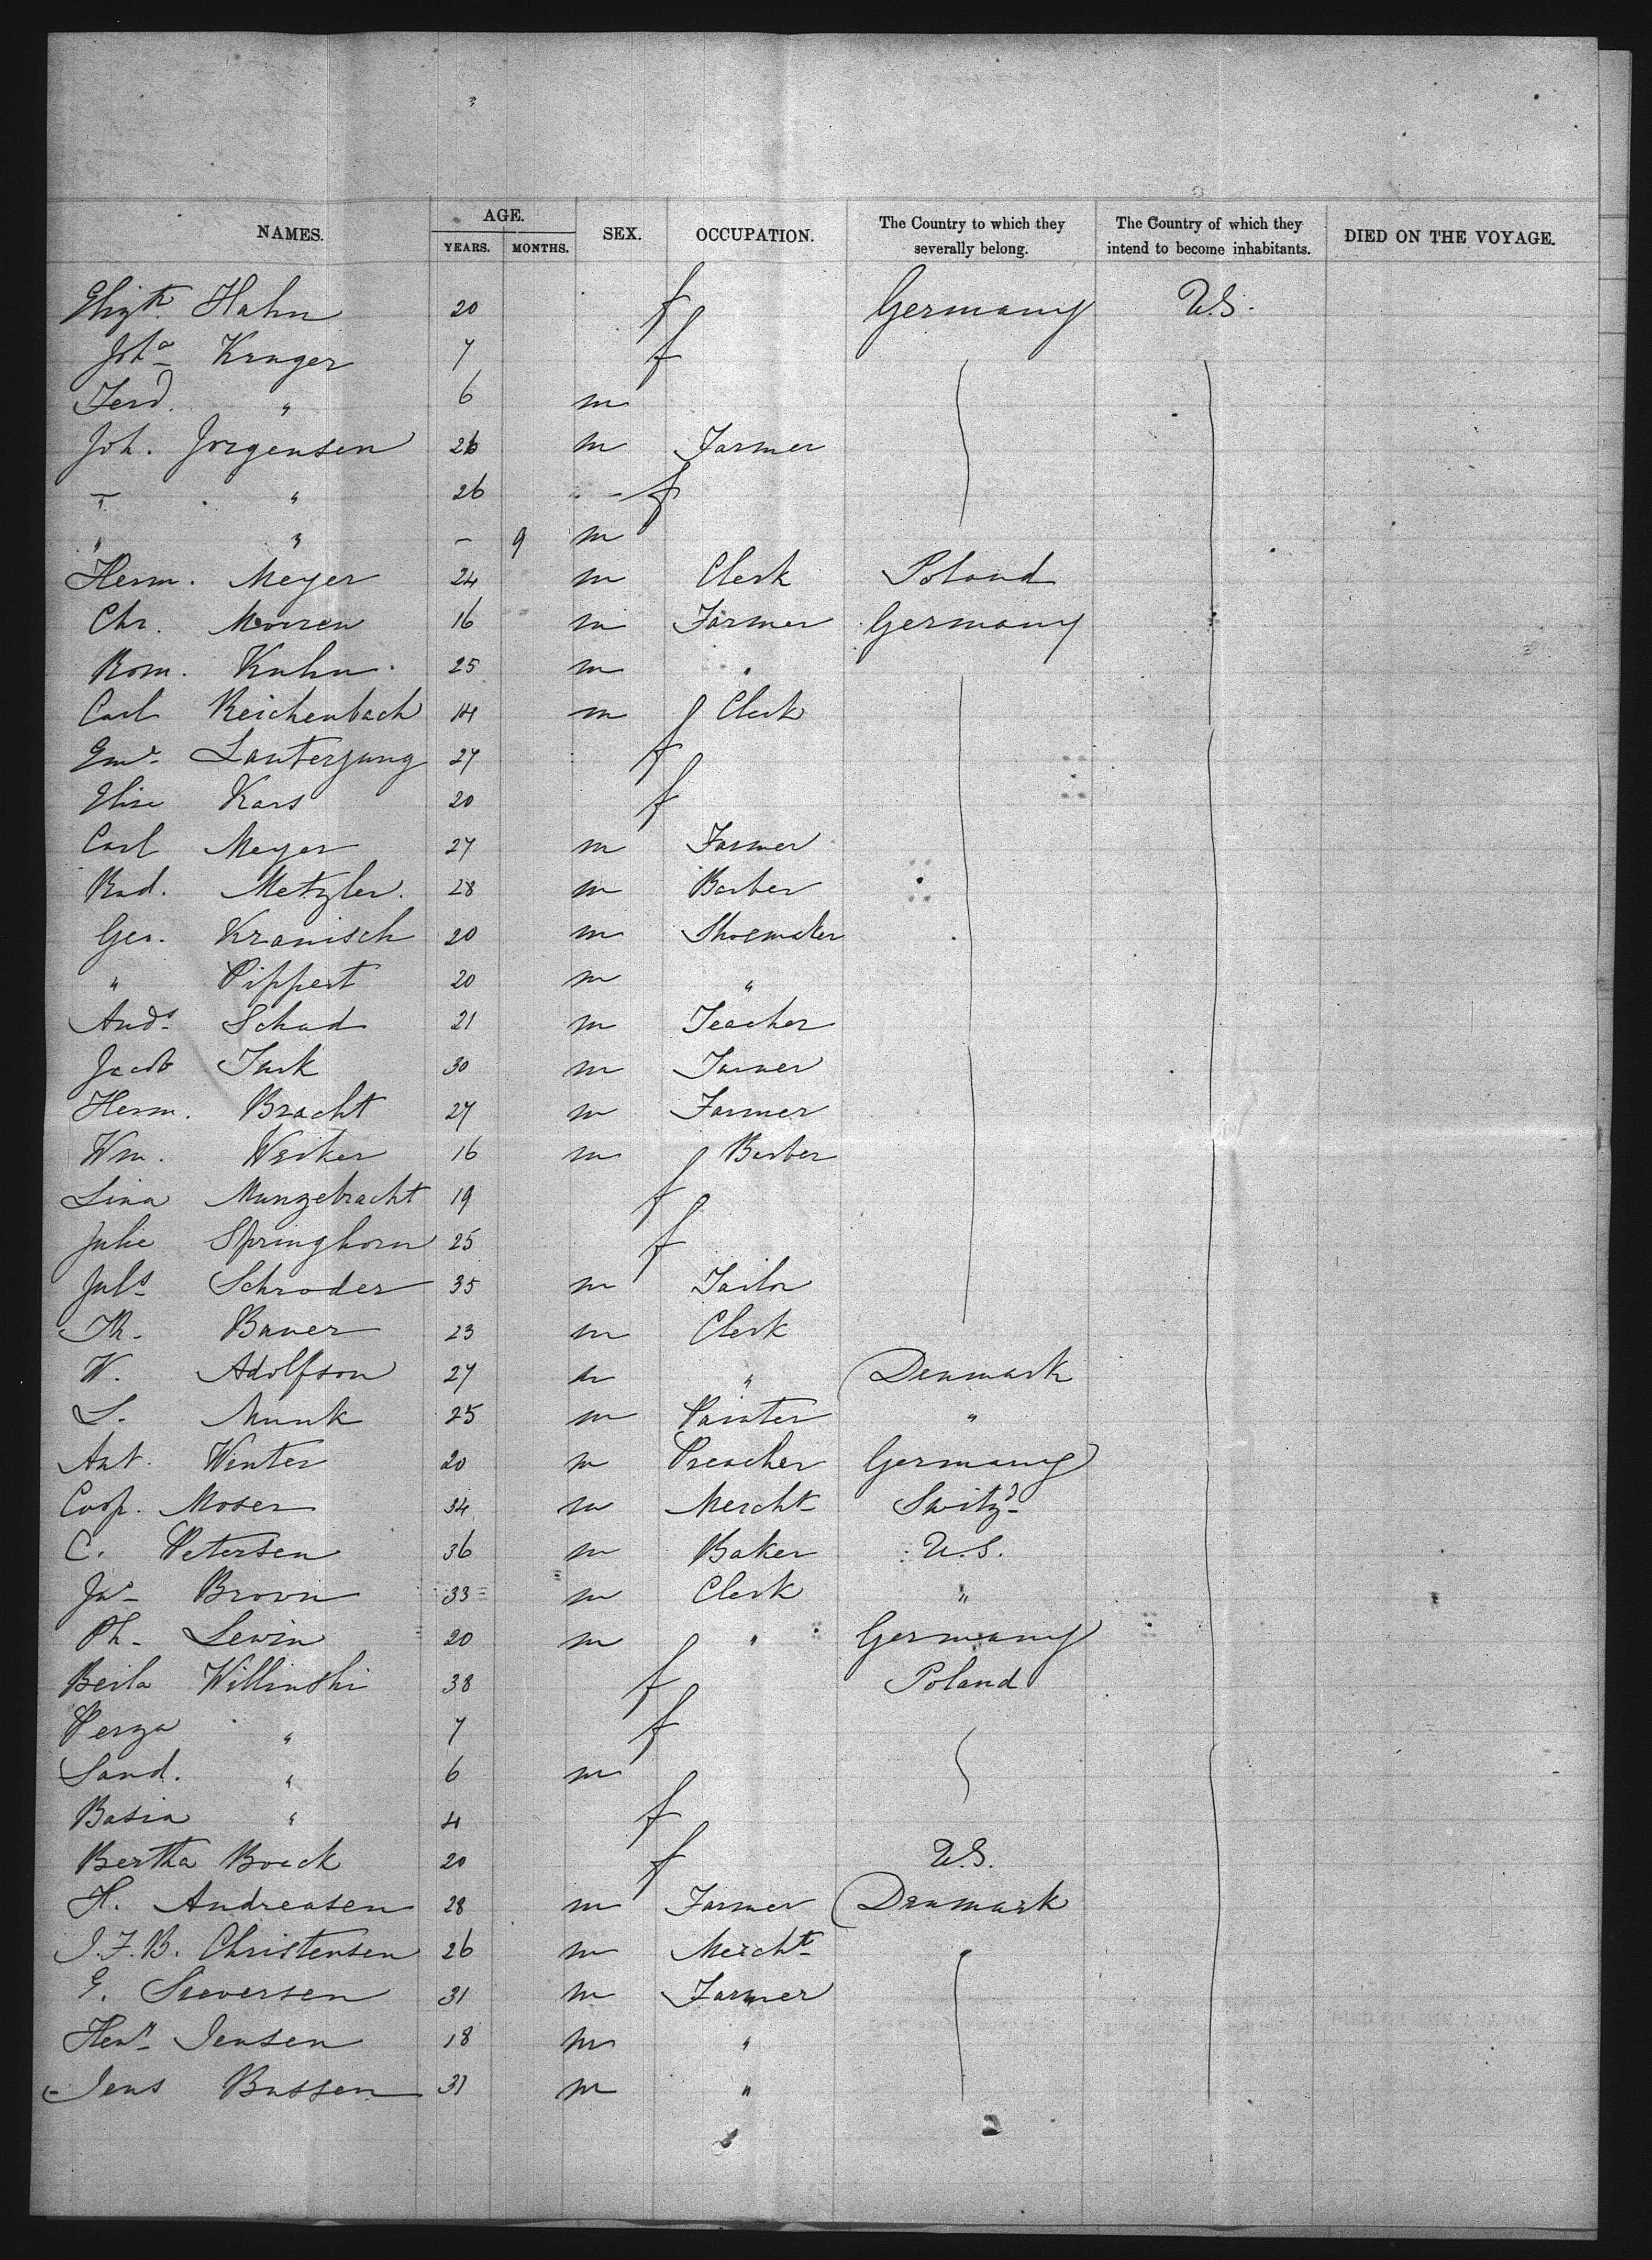 NAMES. AGE. YEARS. MONTHS. SEX. OCCUPATION. The Country to which they severally belong. The Country of which they intend to become inhabitants. DIED ON THE VOYAGE.
Elizth. Hahn 20 f Germany U.S.
Joha Kruger 7 f
Ferd. " 6 m
Joh. Jorgensen 26 m Farmer
" " 26 - f
" " - 9 m
Herm. Meyer 24 m Clerk Poland
Chr. 16 m Farmer Germany
Rom. Kuhn 25 m "
Carl Reichenbach 14 m Clerk
Lauterjung 27 f
Elise Kars 20 f
Carl Meyer 27 m Farmer
Rud. Metzler. 28 m Barber
Geo. Kranisch 20 m Shoemaker
" Pippert 20 m "
Ands Schad 21 m Teacher
Jacob Turk 30 m
Herm. Bracht 27 m Farmer
Wm. 16 m Barber
Lina Munzebracht 19 f
Julie Springhorn 25 f
Juls Schroder 35 m Tailor
Th. Bauer 23 m Clerk
W. Adolfson 27 m " Denmark
L. Munk 25 m Painter "
Ant. Winter 20 m Preacher Germany
Casp. Moser 34 m Mercht Switzd
C. Petersen 36 m Baker U.S.
Jas Brown 33 m Clerk "
Ph. Lewin 20 m " Germany
Beila Willinski 38 f Poland
Perza " 7 f
Sand. " 6 m
Basia " 4 f
Bertha Boeck 20 f U.S.
H. Andreasen 28 m Farmer Denmark
J.F.B. Christensen 26 m Mercht
G. Seversen 31 m Farmer
Henr Jensen 18 m "
Jens Bussen 31 m "